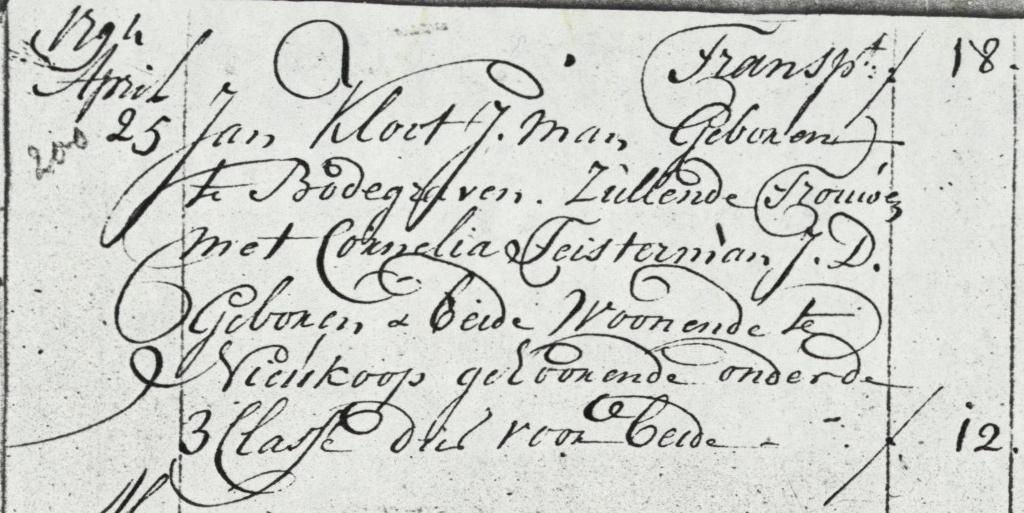 1794 Transpt. 18.
April
200 25 Jan Kloot J. man Geboren
te Bodegraven. Zullende Trouwen
met Cornelia Teisterman J. D.
Geboren & beide Woonende te
Nieukoop gehoorende onder de
3 Classe dus voor beide - - 12.